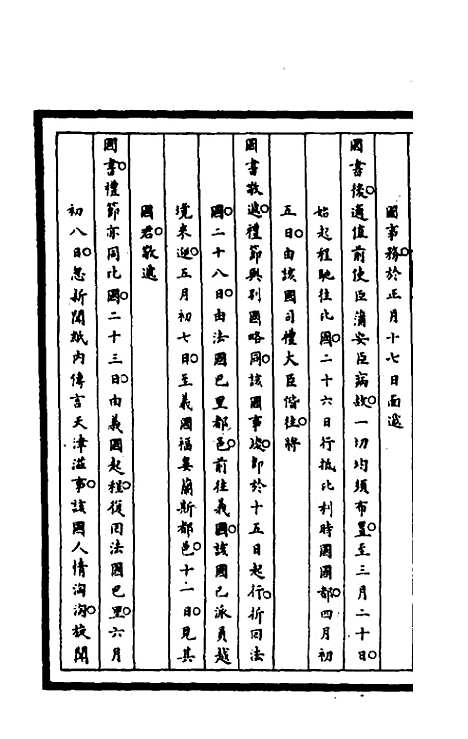 國事務於正月十七日面遞
國書後適值前使臣蒲安臣病故一切均須布置至三月二十日
始起程馳往比國二十六日行抵比利時國國都四月初
五日由該國司禮大臣偕往將
國書敬遞禮節與別國略同該國事竣卽於十五日起行折回法
國二十八日由法國巴里都邑前往義國該國已派員越
境來迎五月初七日至義國福婁蘭斯都邑十一日見其
國君敬遞
國書禮節亦同比國二十三日由義國起程復回法國巴里六月
初八日忽新聞紙內傳言天津滋事該國人情洶洶旋聞